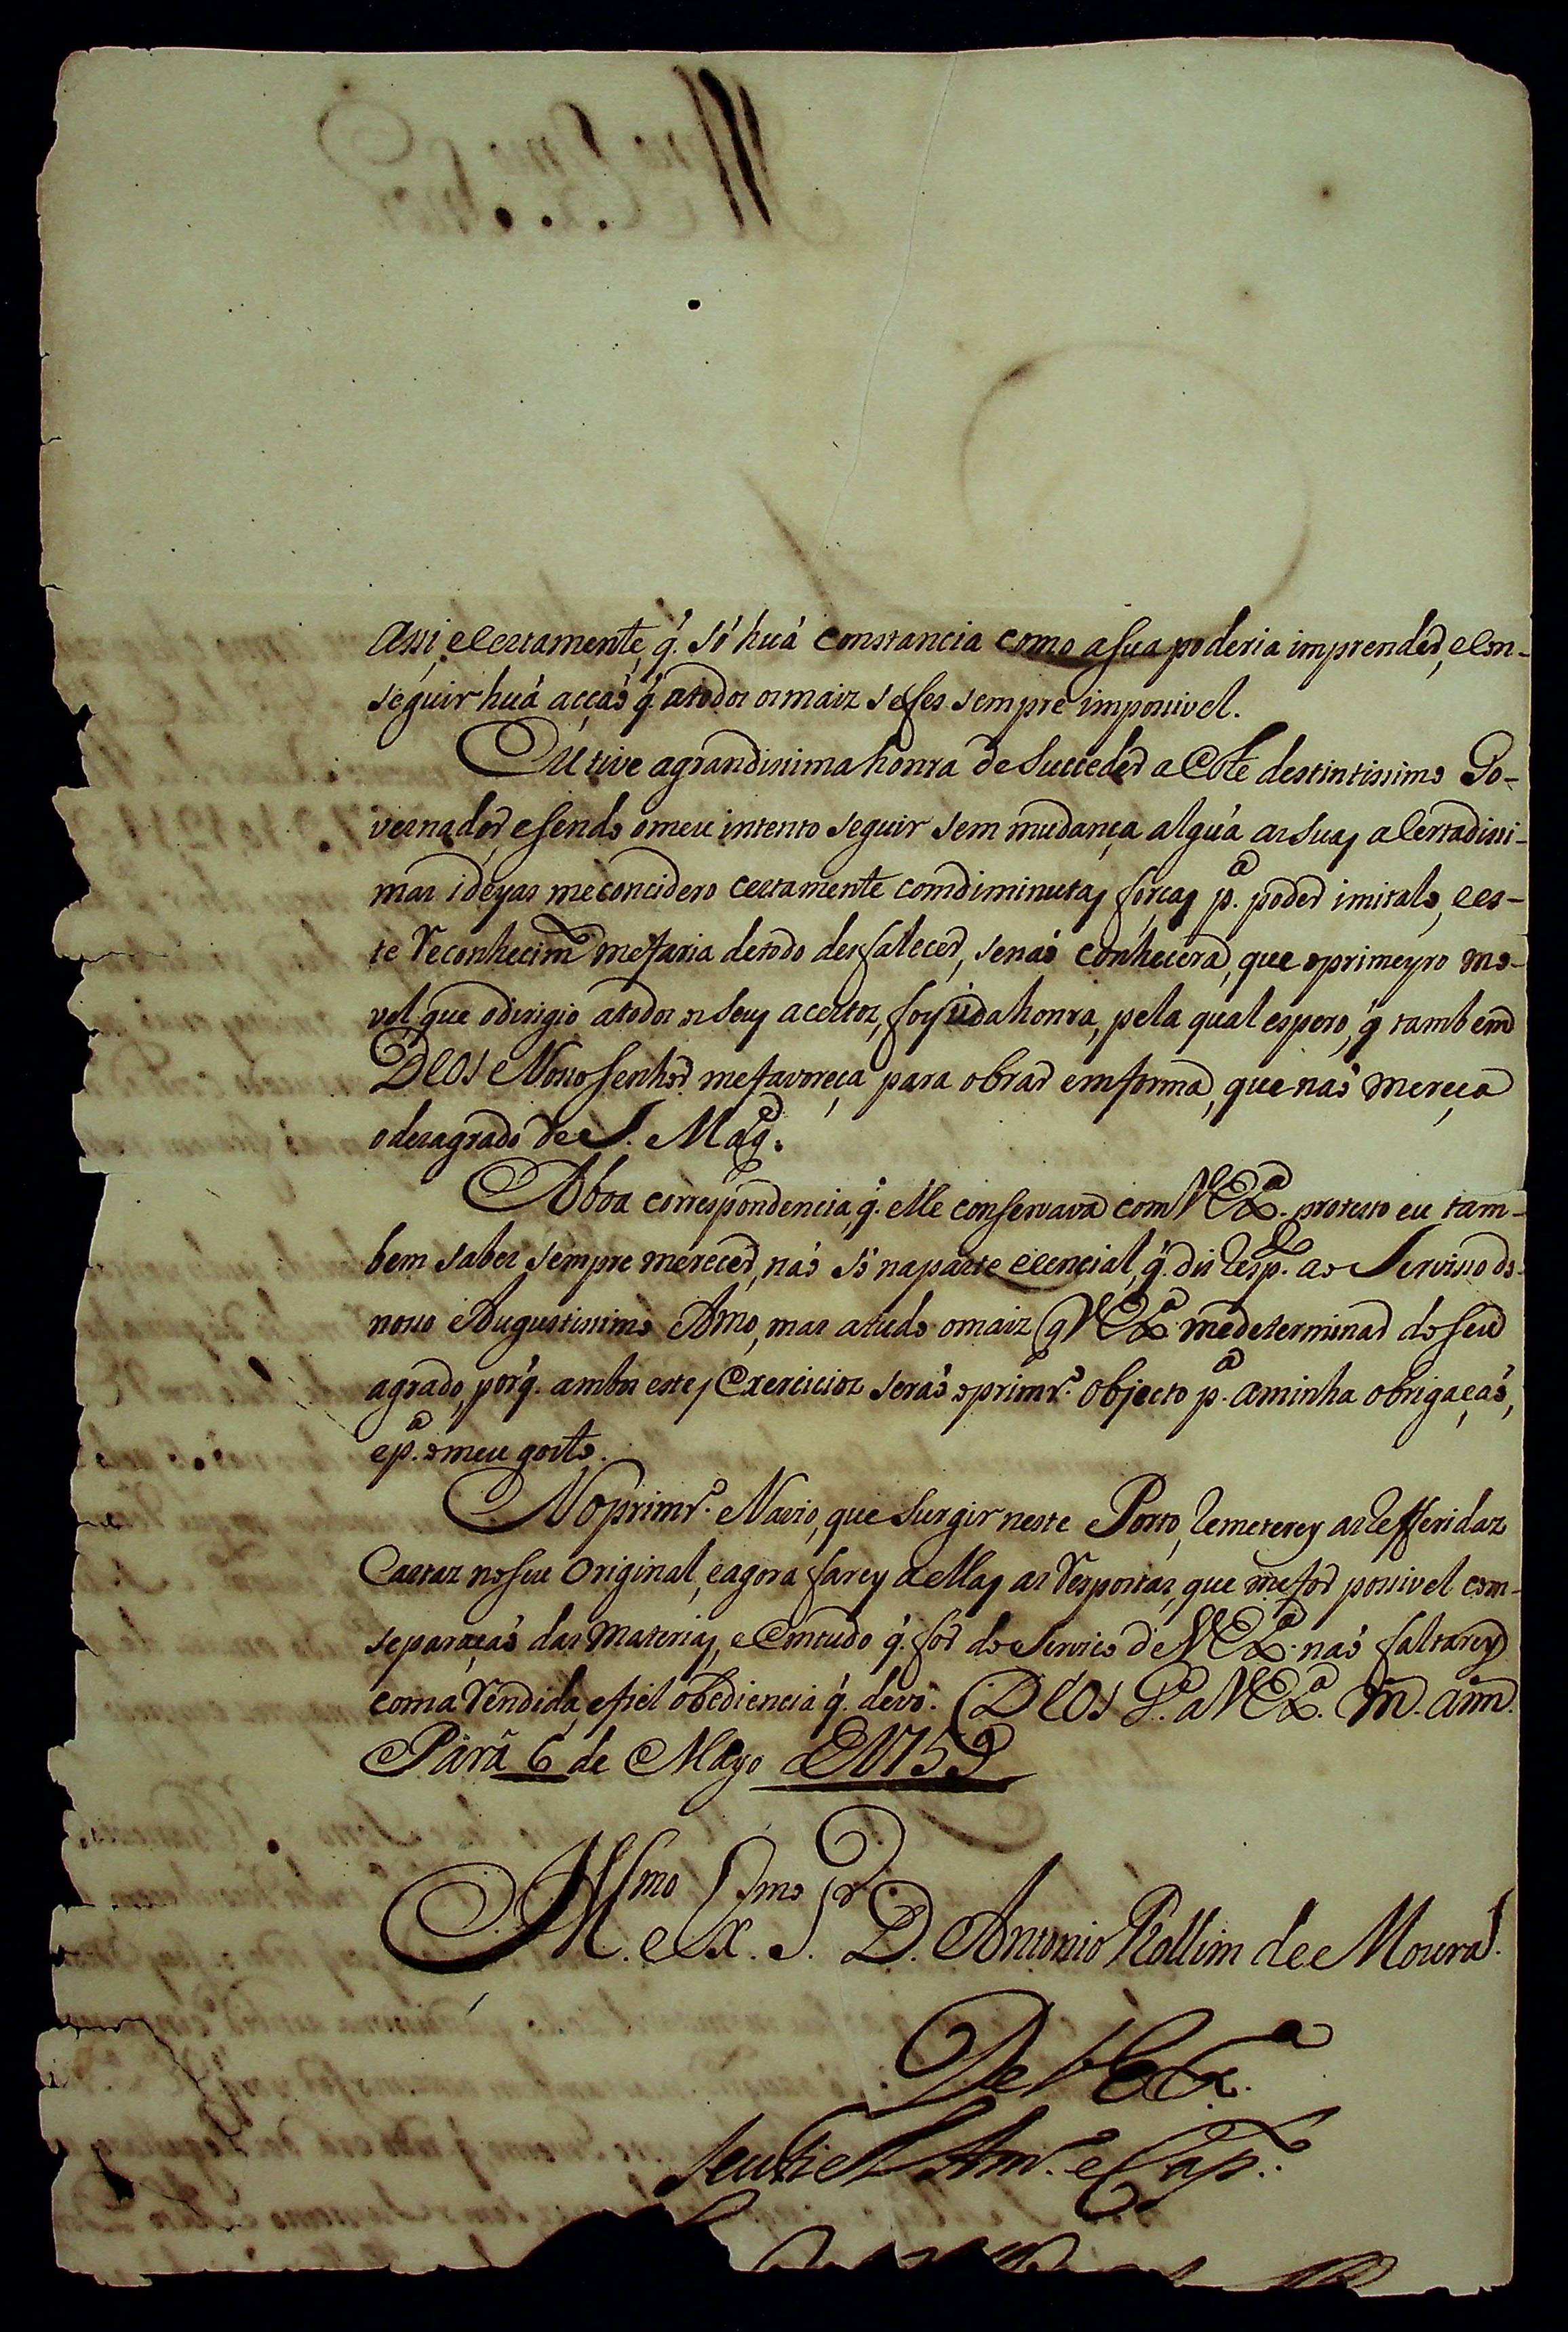 assi, e certamente, q̃. só huã constancia como a sua poderia imprender, e con-
seguir huã acçaõ q̃. a todos os maiz se fes sempre impossivel.
Eu tive a grandissima honra de Succeder a Este destintissimo Go-
vernador, e sendo o meu intento seguir sem mudança algũa as suas acertadissi-
mas idéyas me concidero certamente com diminutas forças p.ª poder imitalo, e es-
te reconhecim.to me faria de todo desfalecer, se naõ conhecera, que o primeyro mo-
vel que o dirigio a todos os seus acertos, foy o da honra, pela qual espero, q̃ tambem
Deos Nosso Senhor me favoreça para obrar em forma, que naõ mereça
o dezagrado de S. Mag.e
A boa correspondencia, q̃. elle conservava com V Ex.ª protesto eu tam-
bem saber sempre merecer, naõ só na parte eencial, q̃. diz resp.to ao Servisso do
nosso Augustissimo Amo, mas a tudo o maiz q̃ V Ex.ª me determinar do seu
agrado, porq̃. ambos estes Exercicioz seraõ o primr.º objecto p.ª a minha obrigaçaõ,
e p.ª o meu gosto.
No primr.º Navio, que surgir neste Porto, remeterey as refferidaz
Cartaz no seu Original, e agora farey a ellas as respostas, que me for possivel com
separaçaõ das Materias, e em tudo q̃. for do Servico de V Ex.ª naõ faltarey
com a rendida, e fiel obediencia q̃. devo. Deos G.e a V Ex.ª m. ann.
Pará 6 de Mayo de 1759
Ill.mo e Ex.mo S.r D. Antonio Rollim de Moura.
De V Ex.ª
seu fiel Am.º e Cap.